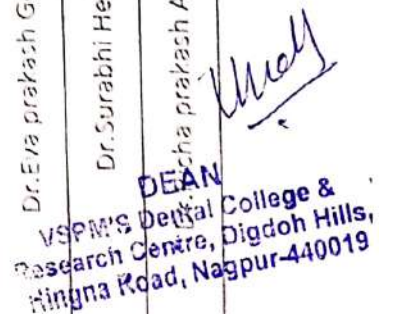 Dr.Eva prakash G
Dr.Surabhi He
cha prakash A
DEAN
VSPM'S Dental College &
Research Centre, Digdoh Hills,
Hingna Road, Nagpur-440019